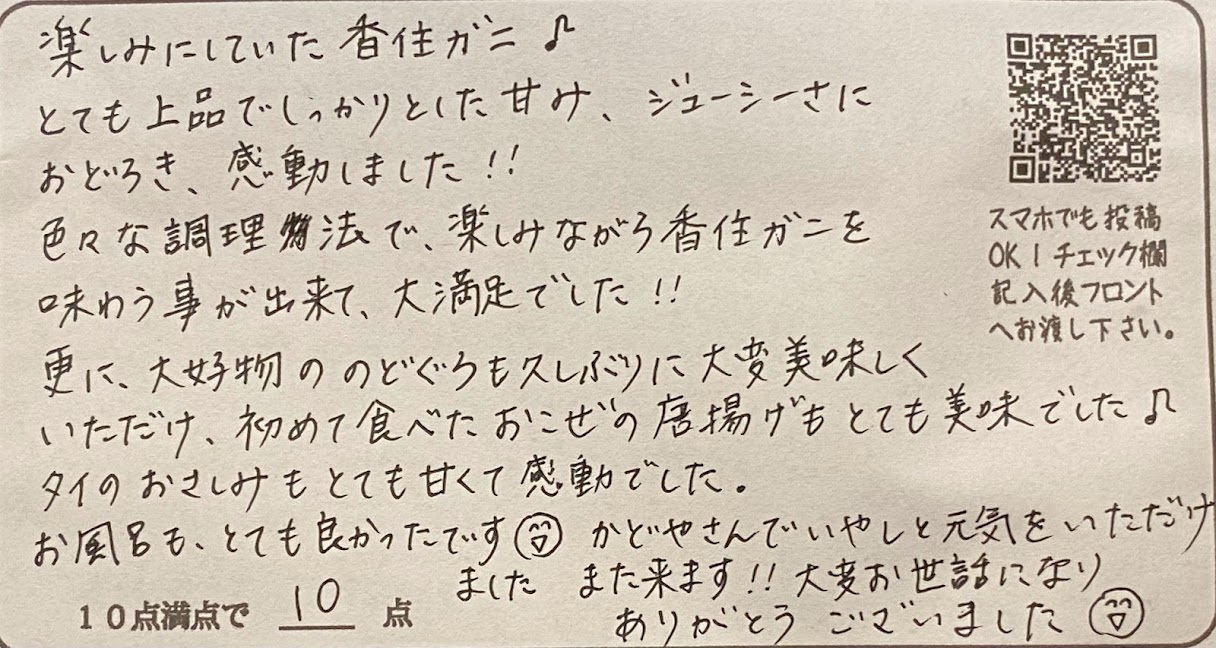 楽しみにしていた香住ガニ♪
とても上品でしっかりとした甘み、ジューシーさに
おどろき、感動しました!!
色々な調理法で、楽しみながら香住ガニを
味わう事が出来て、大満足でした!!
更に、大好物ののどぐろも久しぶりに大変美味しく
いただけ、初めて食べたおこぜの唐揚げもとても美味でした♪
タイのおさしみもとても甘くて感動でした。
お風呂も、とても良かったです かどやさんでいやしと元気をいただけ
ました また来ます!!大変お世話になり
ありがとうございました
10点満点で 10 点
スマホでも投稿
OK!チェック欄
記入後フロント
へお渡し下さい。